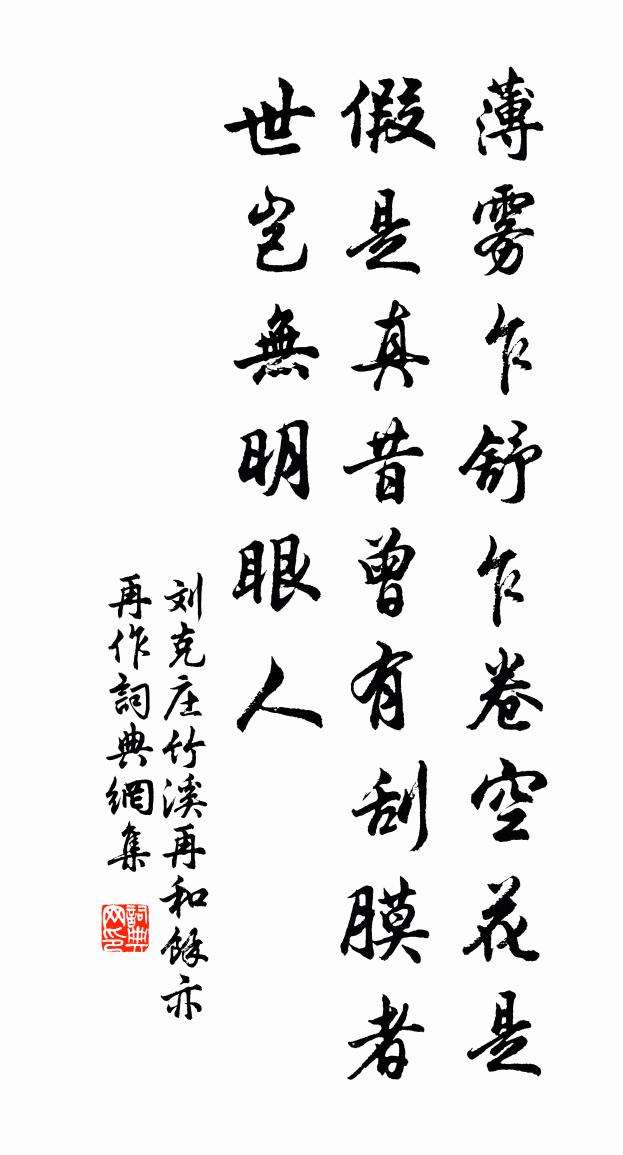 薄雾乍舒乍卷空花是
假是真昔曾有刮膜者
世岂無明眼人
刘克庄竹溪再和馀亦
再作詞典網集
詞典网印